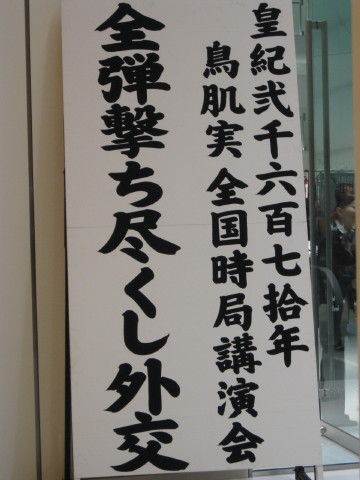 皇紀弐千六百七拾年
鳥肌実全国時局講演会
全弾撃ち尽くし外交